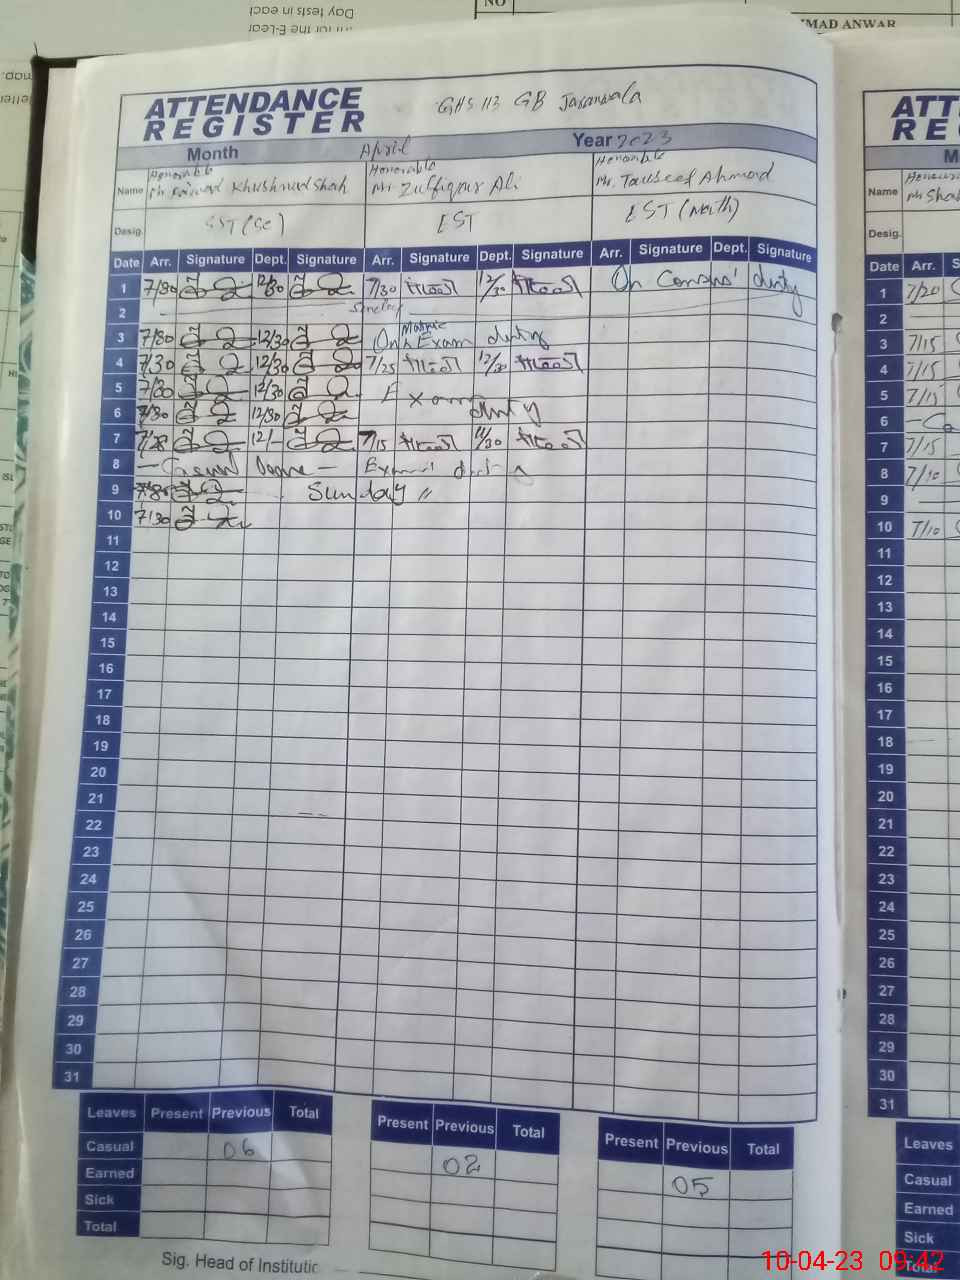 NO
MAD ANWAR
Day tests in each
ATTENDANCE
REGISTER
GHS 113 GB Jaranwala
Month April Year 2023
Name Honorable Honorable Honorable
Khushnud shah Mr. Zulfiqar Ali Mr. Tauseef Ahmad
Desig. SST (Sc) EST EST (Math)
Date Arr. Signature Dept. Signature Arr. Signature Dept. Signature Arr. Signature Dept. Signature
1 7/30 12/30 7/30 12/30 On Census' duty
2 Sunday
3 7/30 12/30 On Matric Exam duty
4 7/30 12/30 7/25 12/30
5 7/30 12/30 Exam duty
6 7/30 12/30
7 7/28 12/- 7/15 11/30
8 - Casual - Exam duty
9 Sunday "
10 7/30
11
12
13
14
15
16
17
18
19
20
21
22
23
24
25
26
27
28
29
30
31
Leaves Present Previous Total Present Previous Total Present Previous Total
Casual 06 02 05
Earned
Sick
Total
Sig. Head of Institutic
ATT
RE
M
Name
Desig.
Date Arr. S
1 7/20
2
3 7/15
4 7/15
5 7/15
6
7 7/15
8 7/10
9
10 7/10
11
12
13
14
15
16
17
18
19
20
21
22
23
24
25
26
27
28
29
30
31
Leaves
Casual
Earned
Sick
Total
10-04-23 09:42